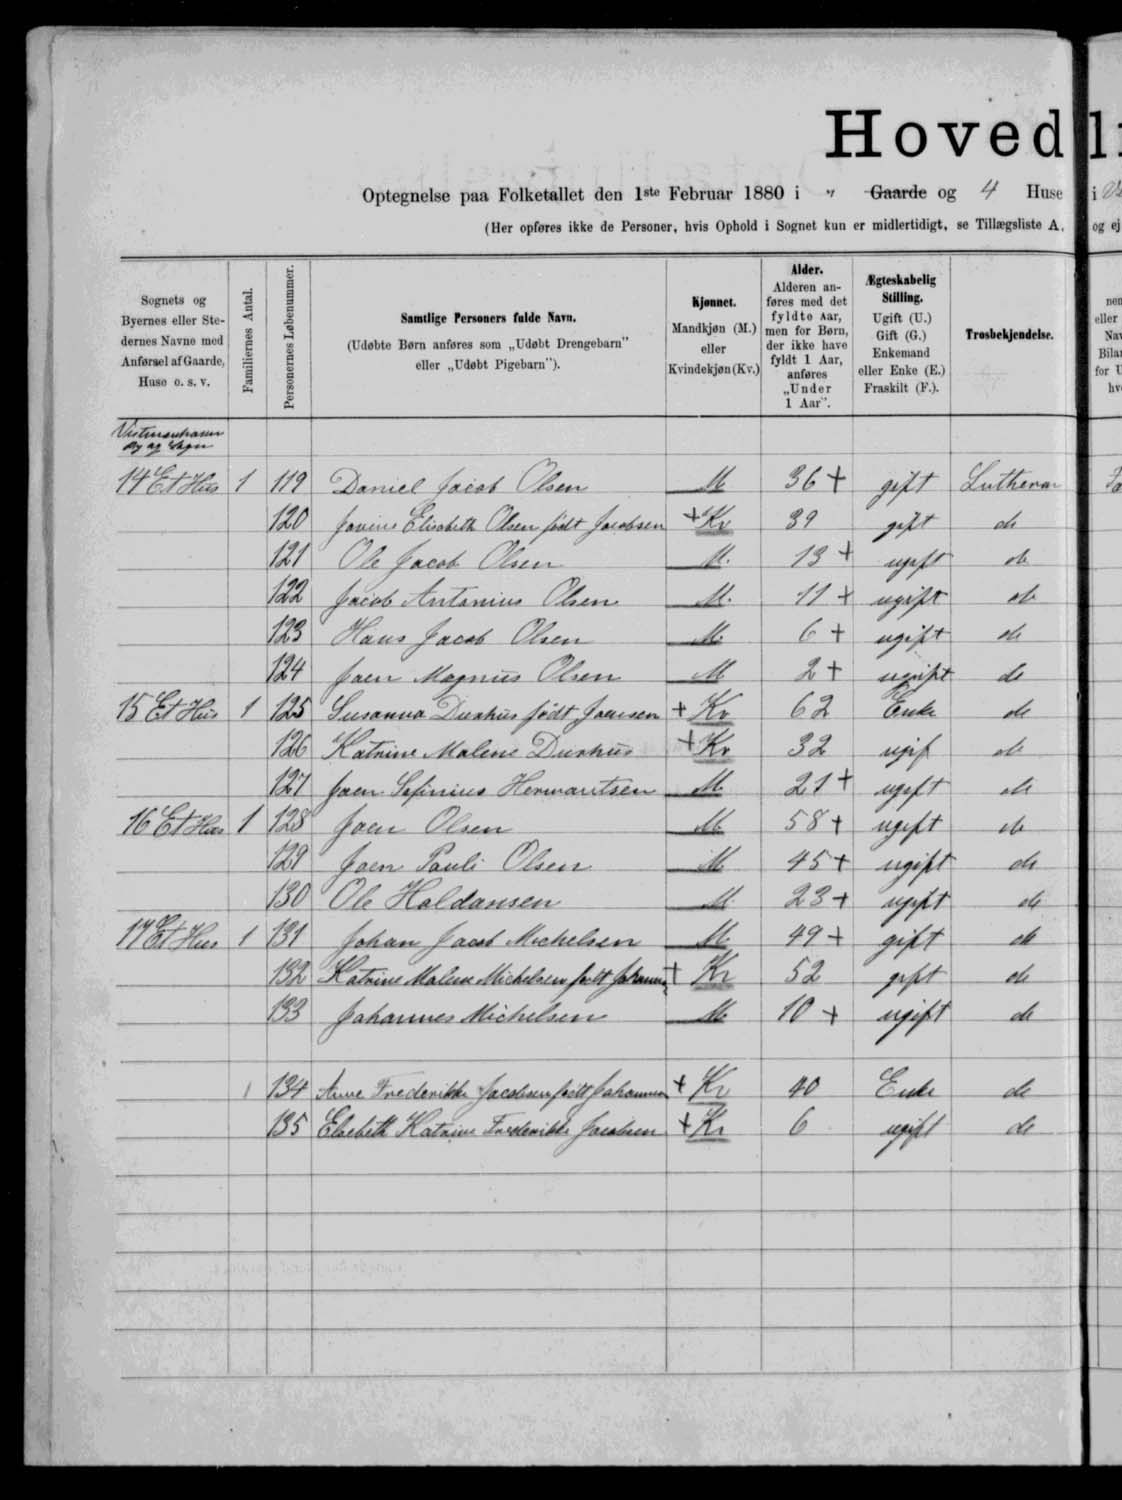 Hovedli
Optegnelse paa Folketallet den 1ste Februar 1880 i " Gaarde og 4 Huse i
(Her opføres ikke de Personer, hvis Ophold i Sognet kun er midlertidigt, se Tillægsliste A, og ej
Sognets og Byernes eller Stedernes Navne med Anførsel af Gaarde, Huse o. s. v.
Familiernes Antal.
Personernes Løbenummer.
Samtlige Personers fulde Navn.
(Udøbte Børn anføres som „Udøbt Drengebarn" eller „Udøbt Pigebarn").
Kjønnet.
Mandkjøn (M.) eller Kvindekjøn (Kv.)
Alder.
Alderen anføres med det fyldte Aar, men for Børn, der ikke have fyldt 1 Aar, anføres „Under 1 Aar".
Ægteskabelig Stilling.
Ugift (U.) Gift (G.) Enkemand eller Enke (E.) Fraskilt (F.).
Trosbekjendelse.
Vestmanhavn
By og Sogn
14 Et Hus 1 119 Daniel Jacob Olsen M 36 + gift Lutheran
120 Elisabeth Olsen født Jacobsen + Kv 39 gift do
121 Ole Jacob Olsen M. 13 + ugift do
122 Jacob Antonius Olsen M. 11 + ugift do
123 Hans Jacob Olsen M. 6 + ugift do
124 Joen Magnus Olsen M 2 + ugift do
15 Et Hus 1 125 Susanna Durhus født Joensen + Kv 62 Enke do
126 Katrine Malene Durhus + Kv 32 ugif do
127 Joen Sofinius Hermantsen M 21 + ugift do
16 Et Hus 1 128 Joen Olsen M 58 + ugift do
129 Joen Pauli Olsen M 45 + ugift do
130 Ole Haldansen M. 23 + ugift do
17 Et Hus 1 131 Johan Jacob Michelsen M 49 + gift do
132 Katrine Malene Michelsen født + Kv 52 gift do
133 Johannes Michelsen M 10 + ugift do
1 134 Anne Frederikke Jacobsen født + Kv 40 Enke do
135 Elsebeth Katrine Frederikke Jacobsen + Kv 6 ugift do